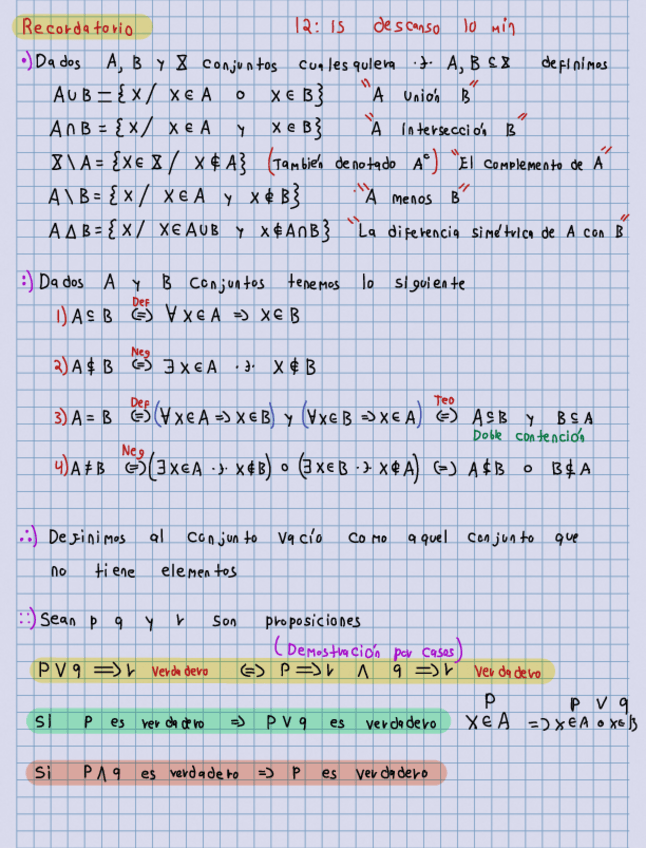 Recordatorio 12:15 descanso 10 min
•) Dados A, B y X conjuntos cualesquiera ·∋· A, B ⊆ X definimos
A∪B = {x / x∈A o x∈B} "A unión B"
A∩B = {x / x∈A y x∈B} "A Intersección B"
X\A = {x∈X / x∉A} (También denotado Aᶜ) "El complemento de A"
A\B = {x / x∈A y x∉B} "A menos B"
A△B = {x / x∈A∪B y x∉A∩B} "La diferencia simétrica de A con B"
:) Dados A y B conjuntos tenemos lo siguiente
Def
1) A⊆B ⇔ ∀x∈A ⇒ x∈B
Neg
2) A⊈B ⇔ ∃x∈A ·∋· x∉B
Def Teo
3) A=B ⇔ (∀x∈A ⇒ x∈B) y (∀x∈B ⇒ x∈A) ⇔ A⊆B y B⊆A
Doble contención
Neg
4) A≠B ⇔ (∃x∈A ·∋· x∉B) o (∃x∈B ·∋· x∉A) ⇔ A⊈B o B⊈A
∴) Definimos al conjunto vacío como aquel conjunto que
no tiene elementos
::) Sean p q y r son proposiciones
(Demostración por casos)
P∨q ⟹ r verdadero ⇔ P ⟹ r ∧ q ⟹ r verdadero
P P∨q
Si P es verdadero ⇒ P∨q es verdadero x∈A ⇒ x∈A o x∈B
Si P∧q es verdadero ⇒ P es verdadero